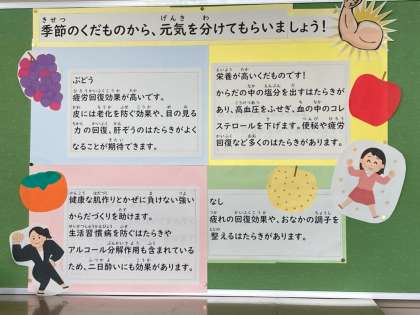 季節のくだものから、元気を分けてもらいましょう！
ぶどう
疲労回復効果が高いです。
皮には老化を防ぐ効果や、目の見る
力の回復、肝ぞうのはたらきがよく
なることが期待できます。
栄養が高いくだものです！
からだの中の塩分を出すはたらきが
あり、高血圧をふせぎ、血の中のコレ
ステロールを下げます。便秘や疲労
回復など多くのはたらきがあります。
健康な肌作りとかぜに負けない強い
からだづくりを助けます。
生活習慣病を防ぐはたらきや
アルコール分解作用も含まれている
ため、二日酔いにも効果があります。
なし
疲れの回復効果や、おなかの調子を
整えるはたらきがあります。